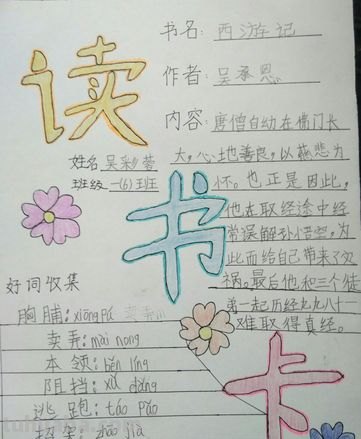 读
书
卡
书名:西游记
作者:吴承恩
内容:唐僧自幼在佛门长
大,心地善良,以慈悲为
怀。也正是因此,
他在取经途中经
常误解孙悟空,为
此而给自己带来了灾
祸。最后他和三个徒
弟一起历经九九八十一
难取得真经。
姓名 吴彩蓉
班级 一(6)班
好词收集
胸脯:xiōng pú 卖弄
卖弄:mài nong
本领:běn lǐng
阻挡: dǎng
逃跑:táo pǎo
招架:zhāo jià